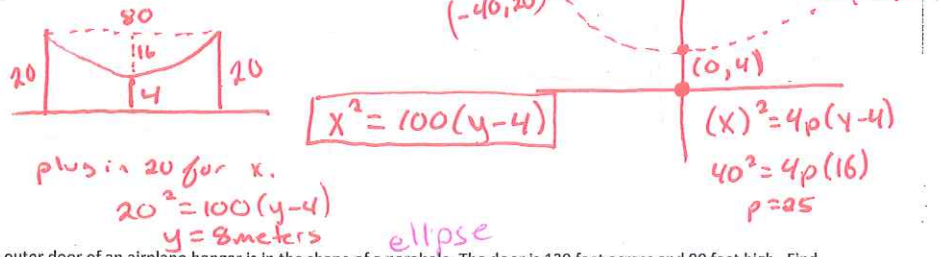 80
(-40,20)
16
20
20
4
(0,4)
x² = 100(y-4)
(x)² = 4p(y-4)
40² = 4p(16)
p = 25
plug in 20 for x.
20² = 100(y-4)
y = 8 meters
ellipse
outer door of an airplane hanger is in the shape of a parabola. The door is 120 feet across and 90 feet high. Find